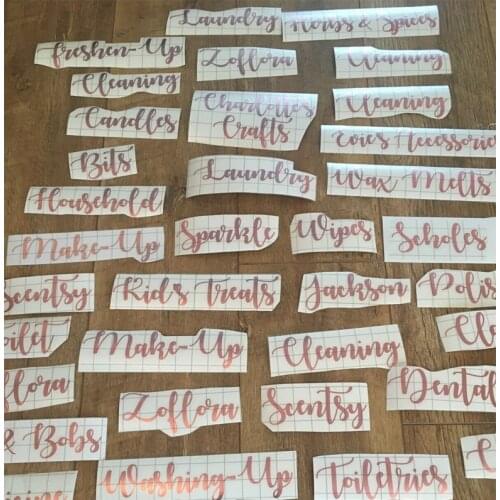 Laundry
Herbs & Spices
Freshen-Up
Zoflora
Cleaning
Cleaning
Charlottes
Crafts
Cleaning
Candles
Evies Accessories
Bits
Laundry
Wax Melts
Household
Sparkle
Wipes
Scholes
Make-Up
Scentsy
Kid's Treats
Jackson
Polis
oilet
Make-Up
Cleaning
Cl
flora
Zoflora
Scentsy
Dental
& Bobs
Washing-Up
Toiletries